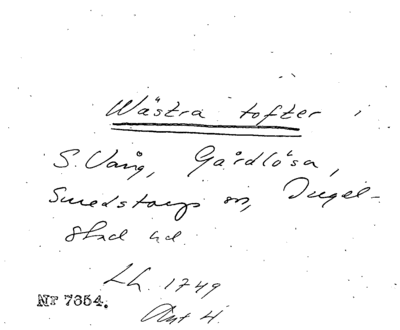 Wästra tofter
S. Vång, Gårdlösa,
Smedstorps sn, Ingel-
stad hd
Lh. 1749
Akt 4.
Nr 7354.